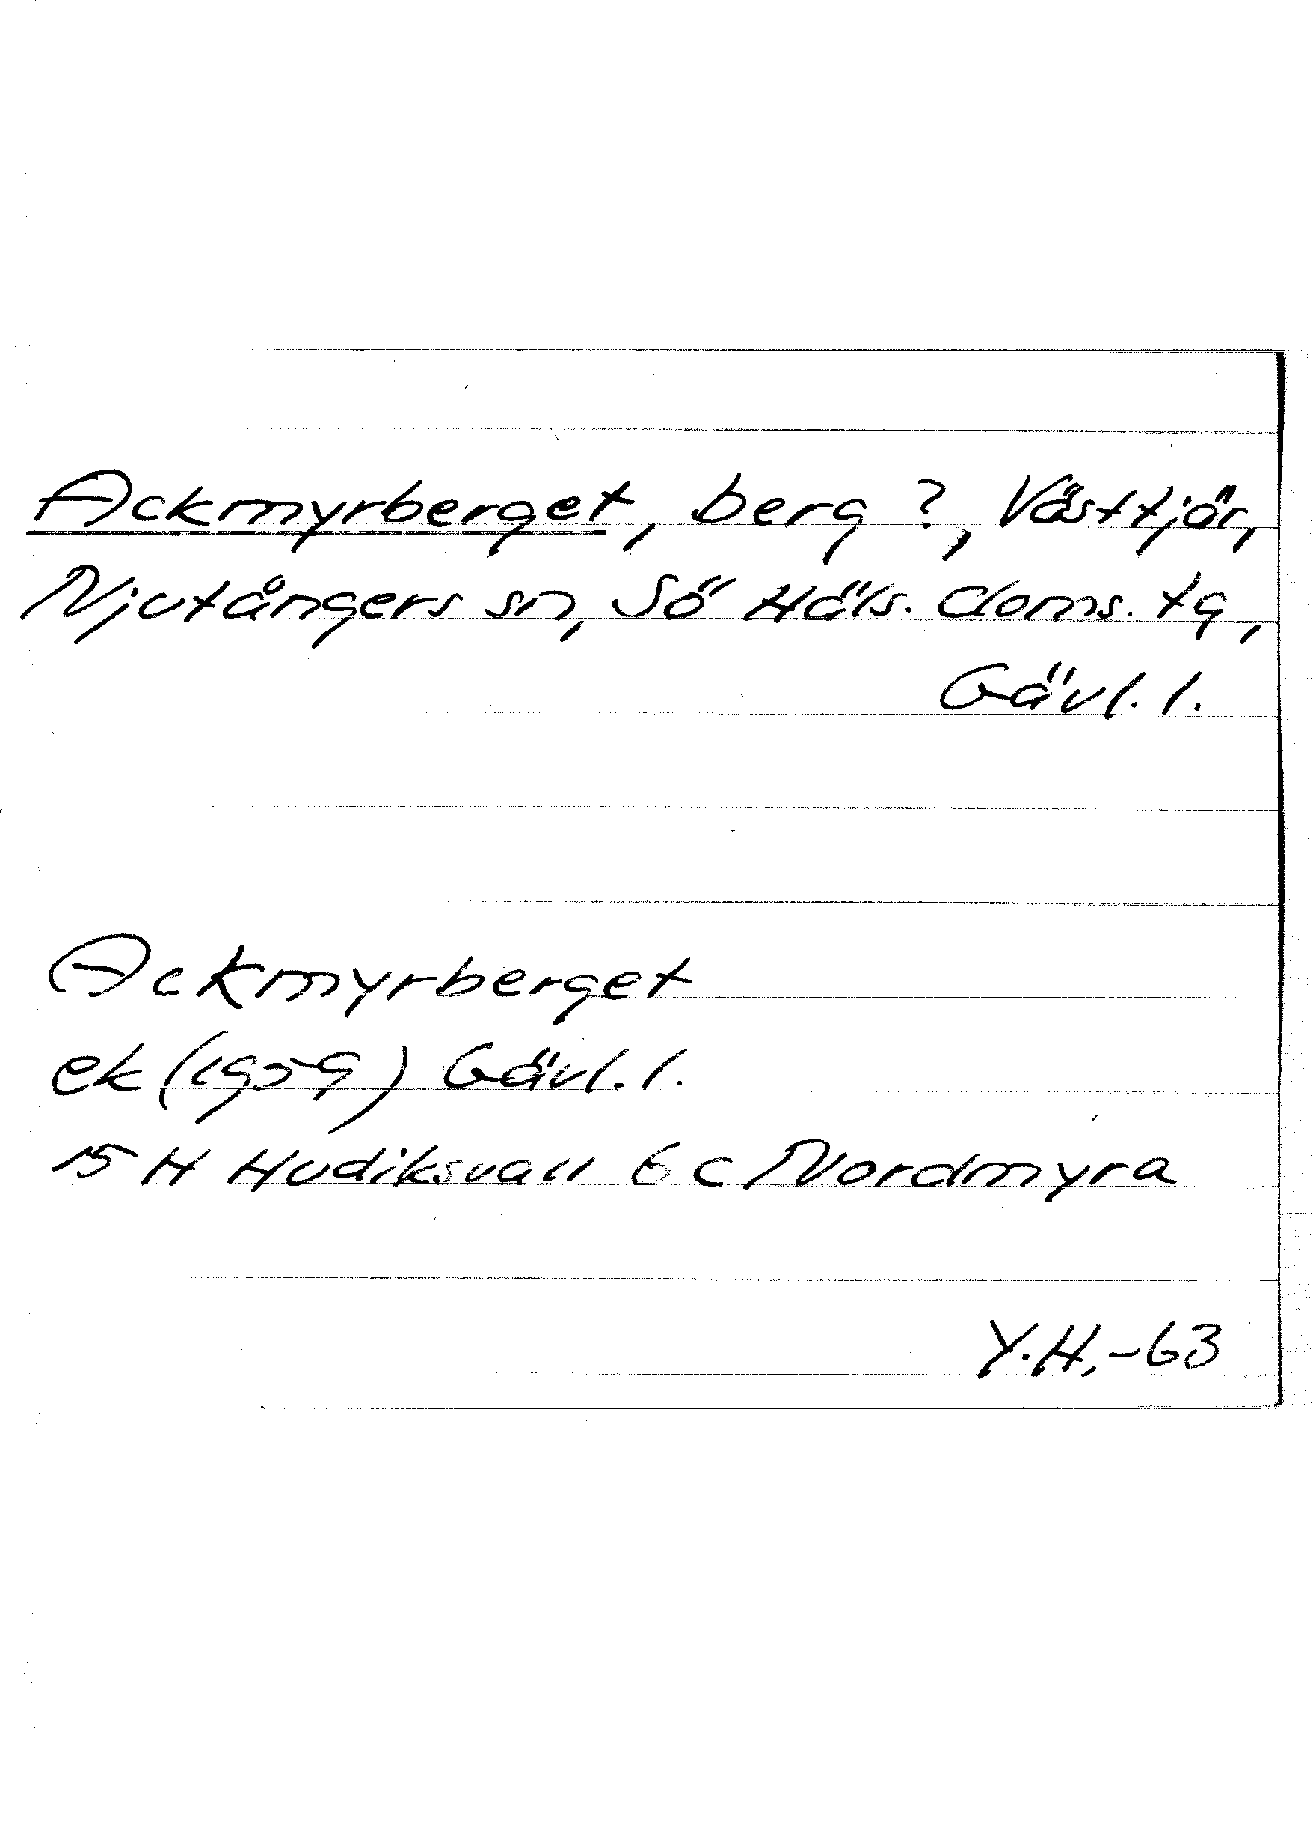 Ackmyrberget, berg ?, Västtjär,
Njutångers sn, Sö Häls. doms. tg,
Gävl. l.
Ackmyrberget
ek (1959) Gävl. l.
15 H Hudiksvall 6 c Nordmyra
Y.H,-63